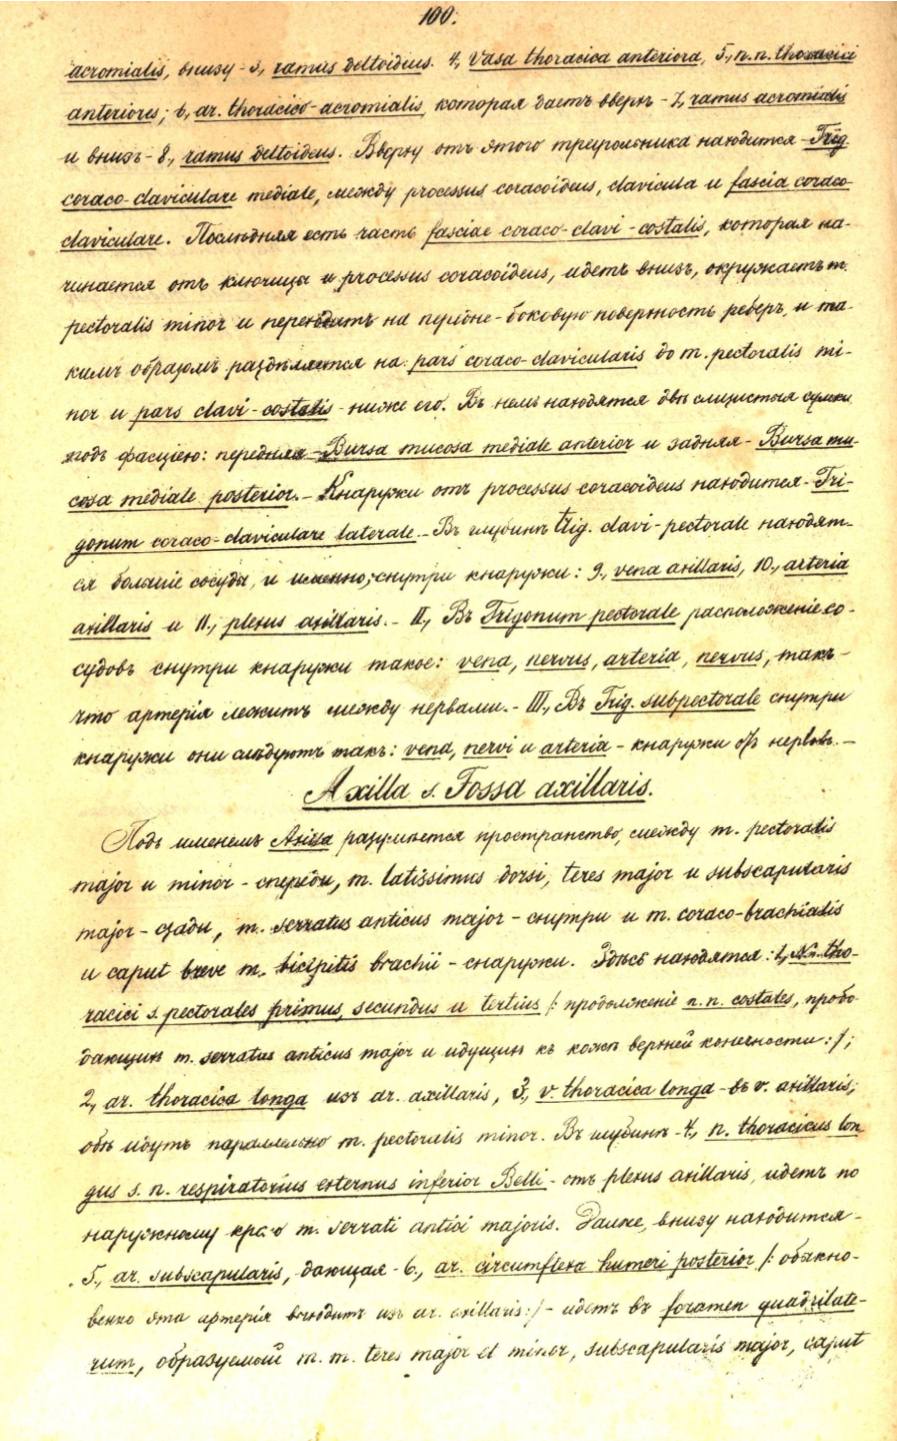 100.
acromialis, внизу - 3, ramus deltoideus. 4, Vasa thoracica anteriora, 5, n.n. thoracici
anteriores; 6, ar. thoracico-acromialis, которая даетъ вверхъ - 7, ramus acromialis
и внизъ - 8, ramus deltoideus. Вверху отъ этого треугольника находится - Trig.
coraco-claviculare mediale, между processus coracoideus, clavicula и fascia coraco-
claviculare. Послѣдняя есть часть fasciae coraco-clavi-costalis, которая на-
чинается отъ ключицы и processus coracoideus, идетъ внизъ, окружаетъ m.
pectoralis minor и переходитъ на передне-боковую поверхность реберъ, и та-
кимъ образомъ раздѣляется на pars coraco-clavicularis до m. pectoralis mi-
nor и pars clavi-costalis - ниже его. Въ немъ находятся двѣ слизистыя сумки
подъ фасціею: передняя - Bursa mucosa mediale anterior и задняя - Bursa mu-
cosa mediale posterior. - Кнаружи отъ processus coracoideus находится - Tri-
gonum coraco-claviculare laterale. - Въ глубинѣ trig. clavi-pectorale находят-
ся большіе сосуды, и именно, снутри кнаружи: 9, vena axillaris, 10, arteria
axillaris и 11, plexus axillaris. - II, Въ Trigonum pectorale расположеніе со-
судовъ снутри кнаружи такое: vena, nervus, arteria, nervus, такъ-
что артерія лежитъ между нервами. - III, Въ Trig. subpectorale снутри
кнаружи они слѣдуютъ такъ: vena, nervi и arteria - кнаружи отъ нервовъ. -
Axilla s. Fossa axillaris.
Подъ именемъ Axilla разумѣется пространство, между m. pectoralis
major и minor - спереди, m. latissimus dorsi, teres major и subscapularis
major - сзади, m. serratus anticus major - снутри и m. coraco-brachialis
и caput breve m. bicipitis brachii - снаружи. Здѣсь находятся: 1, N.n. tho-
racici s. pectorales primus, secundus и tertius /: продолженіе n. n. costales, пробо-
дающихъ m. serratus anticus major и идущихъ къ кожѣ верхней конечности :/;
2, ar. thoracica longa изъ ar. axillaris, 3, v. thoracica longa - въ v. axillaris;
обѣ идутъ параллельно m. pectoralis minor. Въ глубинѣ - 4, n. thoracicus lon
gus s. n. respiratorius externus inferior Belli - отъ plexus axillaris, идетъ по
наружному краю m. serrati antici majoris. Далѣе, внизу находится -
5, ar. subscapularis, дающая - 6, ar. circumflexa humeri posterior /: обыкно-
венно эта артерія выходитъ изъ ar. axillaris :/ - идетъ въ foramen quadrilate-
rum, образуемый m. m. teres major et minor, subscapularis major, caput